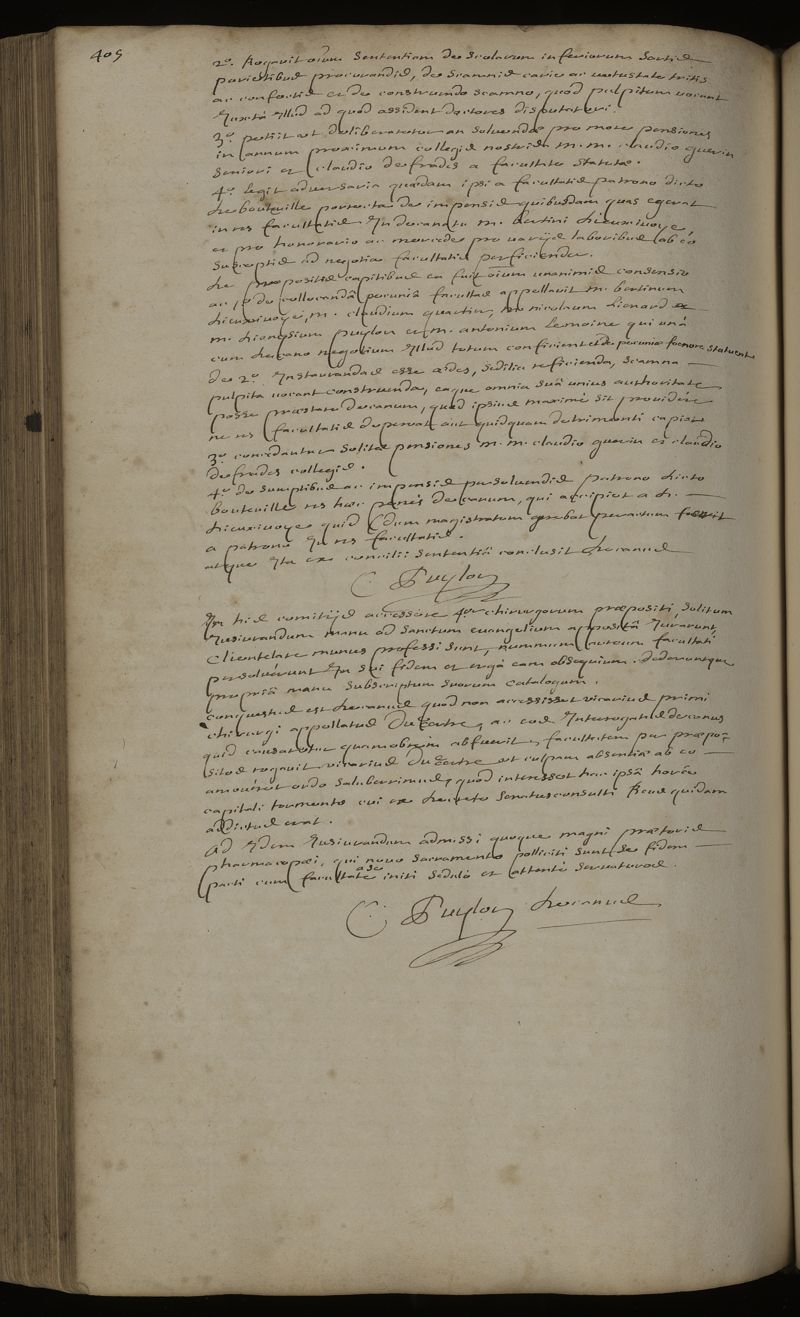 409
2º. Rogavit oium sententiam de scolarum inferiorum sartis
parietibus procurandis, de scamnis carie ac vetustate tritis
ac confectis et de construendo scamno, quod pulpitum vocant
Juxta Illud ad quod assident doctores disputaturi.
3º petiit ut deliberaretur an solvendae pro more pensiones
in annum proximum collegis nostris m. m. claudio quevin
seniori et claudio defrades a facultate statutae.
4º legit adversaria quaedam ipsi a facultatis patrono dicto
de bouteville porrecta de impensis quibusdam quas egerat
in res facultatis In decanatu m. bertini dieuxivoye,
et pro honorario ac mercede pro varijs laboribus ab eo
susceptis ad negotia facultatis perficienda.
de propositis capitibus ea fuit oium unanimis consensio
ac 1º de collocandâ pecuniâ facultas appellavit m. bertinum
dieuxivoye, m. claudium quartier, m. nicolaum lienard
m. dionysium puylon et m. antonium lemoine qui unâ
cum decano negotium Illud totum conficient et de pecuniae foenore statuent
de 2º. Instaurandas esse aedes, sedilia reficienda, scamna
pulpita vocant construenda, eaque omnia suâ unius authoritate
posse praestare decanum, quod ipsius maximè sit providere
ne res facultatis depereat aut quidquam detrimenti capiat
3º concedantur solitae pensiones m. m. claudio quevin et claudio
defrades collegis.
4º de sumptibus ac impensis persolvendis patrono dicto
bouteville res haec penes decanum, qui accipiet a d.
dieuxivoye quid dum magistratum gerebat peractum fuerit
a patrono In res facultatis.
atque Ita ex concilii sententiâ conclusit decanus
C. Puylon
In his comitijs accessere 4or chirurgorum praepositi, solitum
Jusiurandum manu ad sanctum evangelium appositâ Jurarunt,
Clientelare munus professi sunt, nummum aureum facultati
persolverunt In sui fidem et ergà eam obsequium. dederuntque
propriâ manu subscriptum suorum catalogum.
conquestus est decanus quod non accessisset vicarius primi
chirurgi appellatus Du tertre, ac eos Interrogavit decanus
quid causaretur quamobrem abfuerit, facultatem per praepo-
sitos rogavit vicarius Du tertre ut culpam absentiae ab eo
amoveret ordo saluberrimus, quod interesset hac ipsâ horâ
capitali tormento cui ex decreto senatusconsulti Reus quidam
addictus erat.
Ad Idem Jusiurandum admissi quoque magni praetorii
pharmacopoei, qui novo sacramento polliciti sunt se fidem
pacti cum facultate a se initi sedulò et attentè servaturos.
C. Puylon decanus